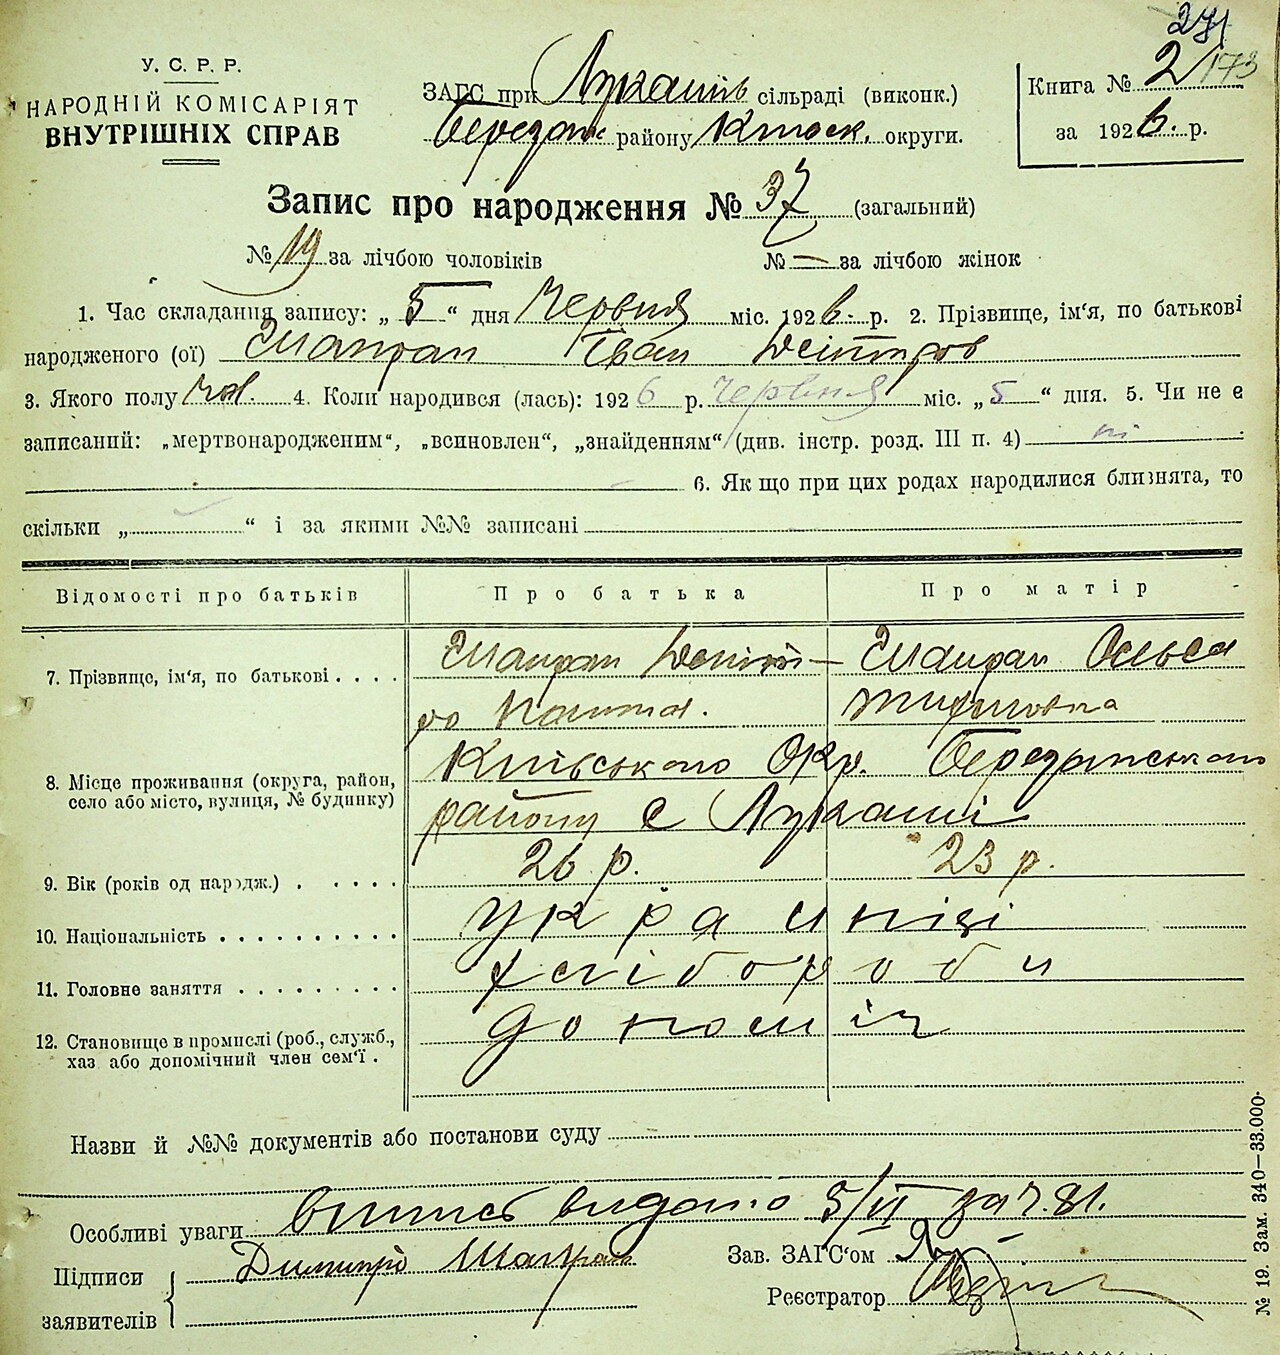 271
У. С. Р. Р.
НАРОДНІЙ КОМІСАРІЯТ
ВНУТРІШНІХ СПРАВ
ЗАГС при Лукашів сільраді (виконк.)
Березан районy Київськ. округи.
Книга № 2 173
за 1926. р.
Запис про народження № 37 (загальний)
№ 19 за лічбою чоловіків
№ — за лічбою жінок
1. Час складання запису: „ 5 “ дня Червня міс. 1926. р. 2. Прізвище, ім‘я, по батькові
народженого (ої) Шапран Іван Дмитров
3. Якого полу чол. 4. Коли народився (лась): 1926 р. Червня міс. „ 5 “ дня. 5. Чи не є
записаний: „мертвонародженим“, „всиновлен“, „знайденням“ (див. інстр. розд. III п. 4) ні
6. Як що при цих родах народилися близнята, то
скільки „ “ і за якими №№ записані
Відомості про батьків Про батька Про матір
7. Прізвище, ім‘я, по батькові Шапран Дмит— Шапран Ольга
ро
8. Місце проживання (округа, район, Київського Окр. Березанського
село або місто, вулиця, № будинку) району с Лукаші
9. Вік (років од народж.) 26 р. 23 р.
10. Національність украинці
11. Головне заняття хлібороби
12. Становище в промислі (роб., служб.,
хаз. або допомічний член сем‘ї.
Назви й №№ документів або постанови суду
Особливі уваги Випись видано 5/VI за ч. 81.
Підписи Димитрі Шапран
заявителів
Зав. ЗАГС‘ом
Реєстратор
№ 19. Зам. 340—33.000.